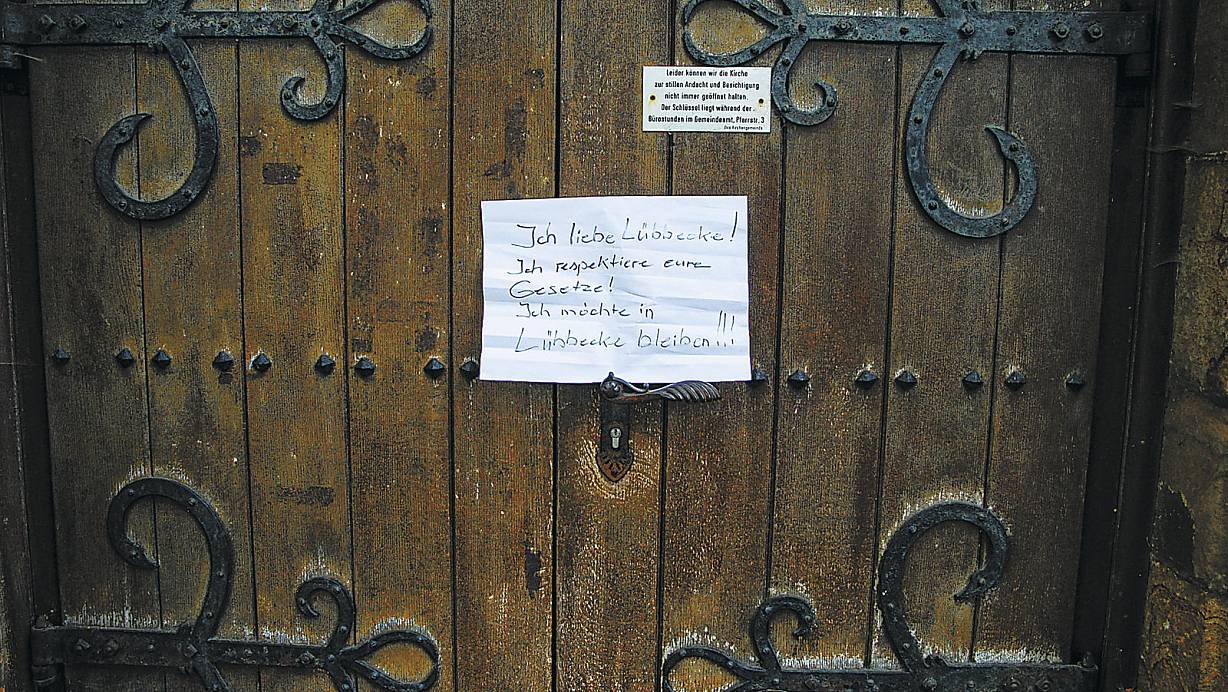 Leider können wir die Kirche
zur stillen Andacht und Besichtigung
nicht immer geöffnet halten.
Der Schlüssel liegt während der
Bürostunden im Gemeindeamt, Pfarrstr. 3
Ihre Kirchengemeinde
Ich liebe Lübbecke!
Ich respektiere eure
Gesetze!
Ich möchte in
Lübbecke bleiben!!!